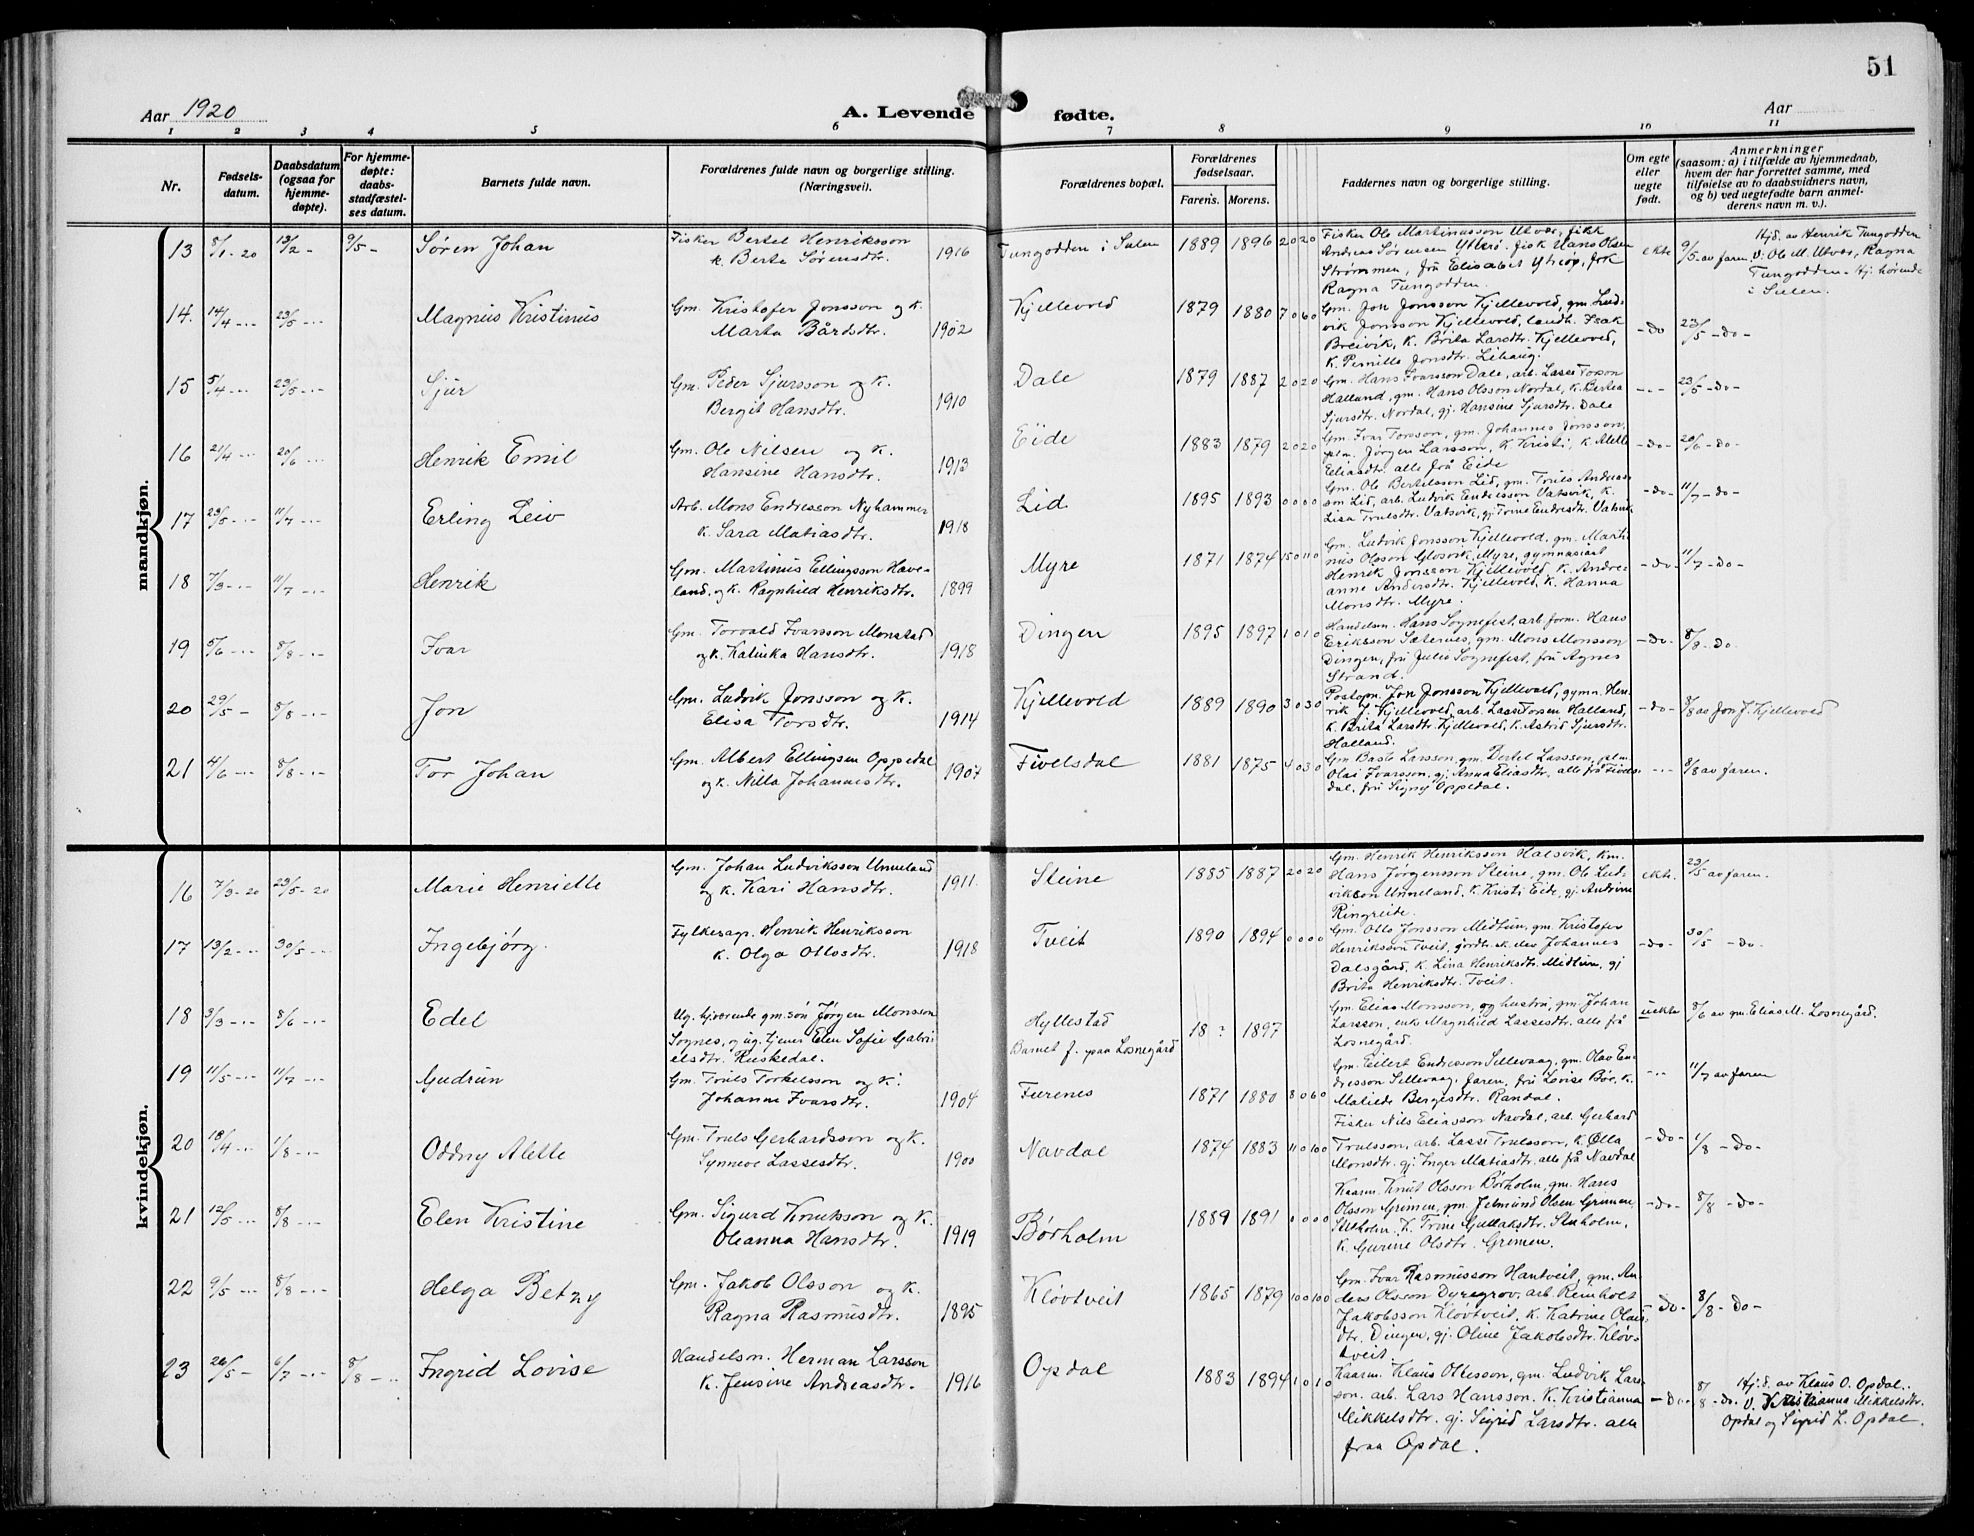 51
Aar 1920
A. Levende fødte.
Aar
1 2 3 4 5 6 7 8 9 10 11
Nr.
Fødsels-
datum.
Daabsdatum
(ogsaa for
hjemme-
døpte).
For hjemme-
døpte:
daabs-
stadfæstel-
ses datum.
Barnets fulde navn.
Forældrenes fulde navn og borgerlige stilling.
(Næringsvei).
Forældrenes bopæl.
Forældrenes
fødselsaar.
Farens. Morens.
Faddernes navn og borgerlige stilling.
Om egte
eller
uegte
født.
Anmerkninger
(saasom: a) i tilfælde av hjemmedaab,
hvem der har forrettet samme, med
tilføielse av to daabsvidners navn,
og b) ved uegtefødte barn anmel-
derens navn m. v.).
mandkjøn.
13 8/1-20 13/2 - 9/5 - Søren Johan
Fisker Bertel Henriksson
k. Berte Sørensdtr. 1916
Tungodden i Sulen 1889 1896 2 0 2 0
Fisker Ole Martinusson Utvær, fisk
Andreas Sørensen Ytterø, fisk Hans Olsen
Strømmen, fru Elisabet Ytrøy, frk
Ragna Tungodden.
ekte 9/5 - av faren
Hjd. av Henrik Tungodden
v. Ole M. Utvær, Ragna
Tungodden - Hj. hørende
i Sulen.
14. 14/4 -.- 23/5 -.- Magnus Kristinus
Gm. Kristofer Jonsson og k.
Marta Bårdsdtr. 1902
Kjellevold 1879 1880 7 0 6 0
Gm. Jon Jonsson Kjellevold, gm. Lud-
vik Jonsson Kjellevold, landh. Isak
Breivik, k. Brita Larsdtr. Kjellevold,
k. Pernille Jonsdtr. Lihaug.
- do 23/5 - do -
15 5/4 -.- 23/5 -.- Sjur
Gm. Peder Sjursson og k.
Bergit Hansdtr. 1910
Dale 1879 1887 2 0 2 0
Gm. Hans Ivarsson Dale, arb. Lasse Torson
Halland, gm. Hans Olsson Nordal, k. Bertea
Sjursdtr. Nordal, gj. Hansine Sjursdtr. Dale
-.- 23/5 - do -
16 21/4 -.- 20/6 -.- Henrik Emil
Gm. Ole Nilsen og k.
Hansine Hansdtr. 1913
Eide 1883 1879 2 0 2 0
Gm. Ivar Torsson, gm. Johannes Jonsson,
Jørgen Larsson, k. Kristi, k Alette
Eliasdtr. alle frå Eide
- do - 20/6 - do -
17 23/5 -.- 11/7 -.- Erling Leiv
Arb. Mons Endresson Nyhammer
k. Sara Matiasdtr. 1918
Lid 1895 1893 0 0 0 0
Gm. Ole Bertelsson Lid, gm. Truls Andreas-
son Lid, arb. Ludvik Endresson Vatsvik, k.
Lisa Trulsdtr. Vatsvik, gj. Trine Endresdtr. Vatsvik
- do - 11/7 - do -
18 7/3 -.- 11/7 -.- Henrik
Gm. Martinus Ellingsson Have-
land, og k. Ragnhild Henriksdtr. 1899
Myre 1871 1874 15 0 11 0
Gm. Ludvik Jonsson Kjellevold, gm. Marti-
nus Olsson Glosvik, Myre, gymnasiast
Henrik Jonsson Kjellevold, k. Andre-
anne Andersdtr. Kjellevold, k. Hanna
Monsdtr. Myre.
- do - 11/7 - do -
19 5/6 -.- 8/8 -.- Ivar
Gm. Torvald Ivarsson Monstad
og k. Kalinka Hansdtr. 1918
Dingen 1895 1897 1 0 1 0
Handelsm. Hans Sognefest, arb. form. Hans
Eriksson Sæternes, gm. Mons Monsson
Dingen, fru Julie Sognefest, fru Agnes
Strand.
- do - 8/8 - do.
20 29/5 - 8/8 -.- Jon
Gm. Ludvik Jonsson og k.
Elisa Torsdtr. 1914
Kjellevold 1889 1890 3 0 3 0
Postopn. Jon Jonsson Kjellevold, gymn. Hen-
rik J. Kjellevold, arb. Lasse Torson Halland,
k. Brita Larsdtr. Kjellevold, k. Astrid Sjursdtr.
Halland.
- do - 8/8 av Jon J. Kjellevold
21 4/6 -.- 8/8 -.- Tor Johan
Gm. Albert Ellingsen Oppedal
og k. Nilla Johannesdtr. 1907
Fivelsdal 1881 1875 4 0 3 0
Gm Larsson, gm. Bertel Larsson,
Olai Ivarsson, gj. Anna Eliasdtr, alle frå Fivels-
dal. fru Signy Oppedal.
-.- 8/8 av faren.
kvindekjøn.
16 7/3-20 23/5-20 Marie Henriette
Gm. Johan Ludviksson Unneland
og k. Kari Hansdtr. 1911.
Steine 1885 1887 2 0 2 0
Gm. Henrik Henriksson Halsvik, km.
Hans Jørgensson Steine, gm. Ole Lud-
vikson Unneland, k. Kristi Eide, gj. Andrine
Ringreide.
ekte. 23/5 av faren.
17 13/2 -.- 30/5 -.- Ingebjørg.
Fylkesagr. Henrik Henriksson
k. Olga Ottosdtr. 1918
Tveit 1890 1894 0 0 0 0
Gm. Otto Jonsson Midtun, gm. Kristofer
Henriksson Tveit, jordsk. elev Johannes
Dalsgård, k. Lina Henriksdtr. Midtun, gj
Brita Henriksdtr. Tveit.
- do - 30/5 - do.
18 3/3 -.- 8/6 -.- Edel
Ug. hjværende gm. søn Jørgen Monsson
Sognes, og ug. tjener Elen Sofie Gabri-
elsdtr. Ruskedal.
Hyllestad
Barnet f. paa Losnegård 18 ? 1897
Gm. Elias Monsson, og hustru, gm. Johan
Larsson, enk Magnhild Lassesdtr. alle frå
Losnegård.
uekte 8/6 av gm. Elias M. Losnegård.
19 11/5 -.- 11/7 -.- Gudrun
Gm. Truls Torkelsson og k.
Johanne Ivarsdtr. 1904
Furenes 1871 1880 8 0 6 0
Gm. Eilert Endresson Sillevaag, gm. Olav En-
dresson Sillevaag, faren, fru Lovise Bøe, k.
Matilde Bergesdtr. Randal.
-.- 11/7 av faren
20 18/4 -.- 1/8 -.- Oddny Alette
Gm. Truls Gerhardsson og k.
Synneve Lassesdtr. 1900
Navdal 1874 1883 11 0 10 0
Fisker Nils Eliasson Navdal, arb. Gerhard
Trulsson, arb. Lasse Trulsson, k. Olla
Monsdtr. gj. Inger Matiasdtr. alle frå Navdal
- do - 1/8 - do -
21 12/5 -.- 8/8 -.- Elen Kristine
Gm. Sigurd Knutsson og k.
Oleanna Hansdtr. 1919
Børholm 1889 1891 0 0 0 0
Kaarm. Knut Olsson Børholm, gm. Hans
Olsson Grimen, gm. Jetmund Olsen Grimen,
k. Trine Gullaksdtr.
k. Gurine Olsdtr. Grimen.
- do - 8/8 - do -
22 9/5 -.- 8/8 -.- Helga Betzy
Gm. Jakob Olsson og k.
Ragna Rasmusdtr. 1895
Kløvtveit 1865 1879 10 0 10 0
Gm. Ivar Rasmusson Hantveit, gm. An-
ders Olsson Dyregrov, arb Reinholt
Jakobsson Kløvtveit, k. Katrine Olais-
dtr. Dingen, gj. Oline Jakobsdtr. Kløv-
tveit
- do - 8/8 - do -
23 26/5 - 6/7 -.- 8/8 -.. Ingrid Lovise
Handelsm. Herman Larsson
k. Jensine Andreasdtr. 1916
Opdal 1883 1894 1 0 1 0
Kaarm. Klaus Ottesson, gm. Ludvik Lars-
son. arb. Lars Hansson. k. Kristianna
Mikkelsdtr. gj. Sigrid Larsdtr. alle
fraa Opdal.
- do - 8/8 - do.
Hj.d. av Klaus O. Opdal.
v. Kristianna Mikkelsdtr.
Opdal og Sigrid L. Opdal.